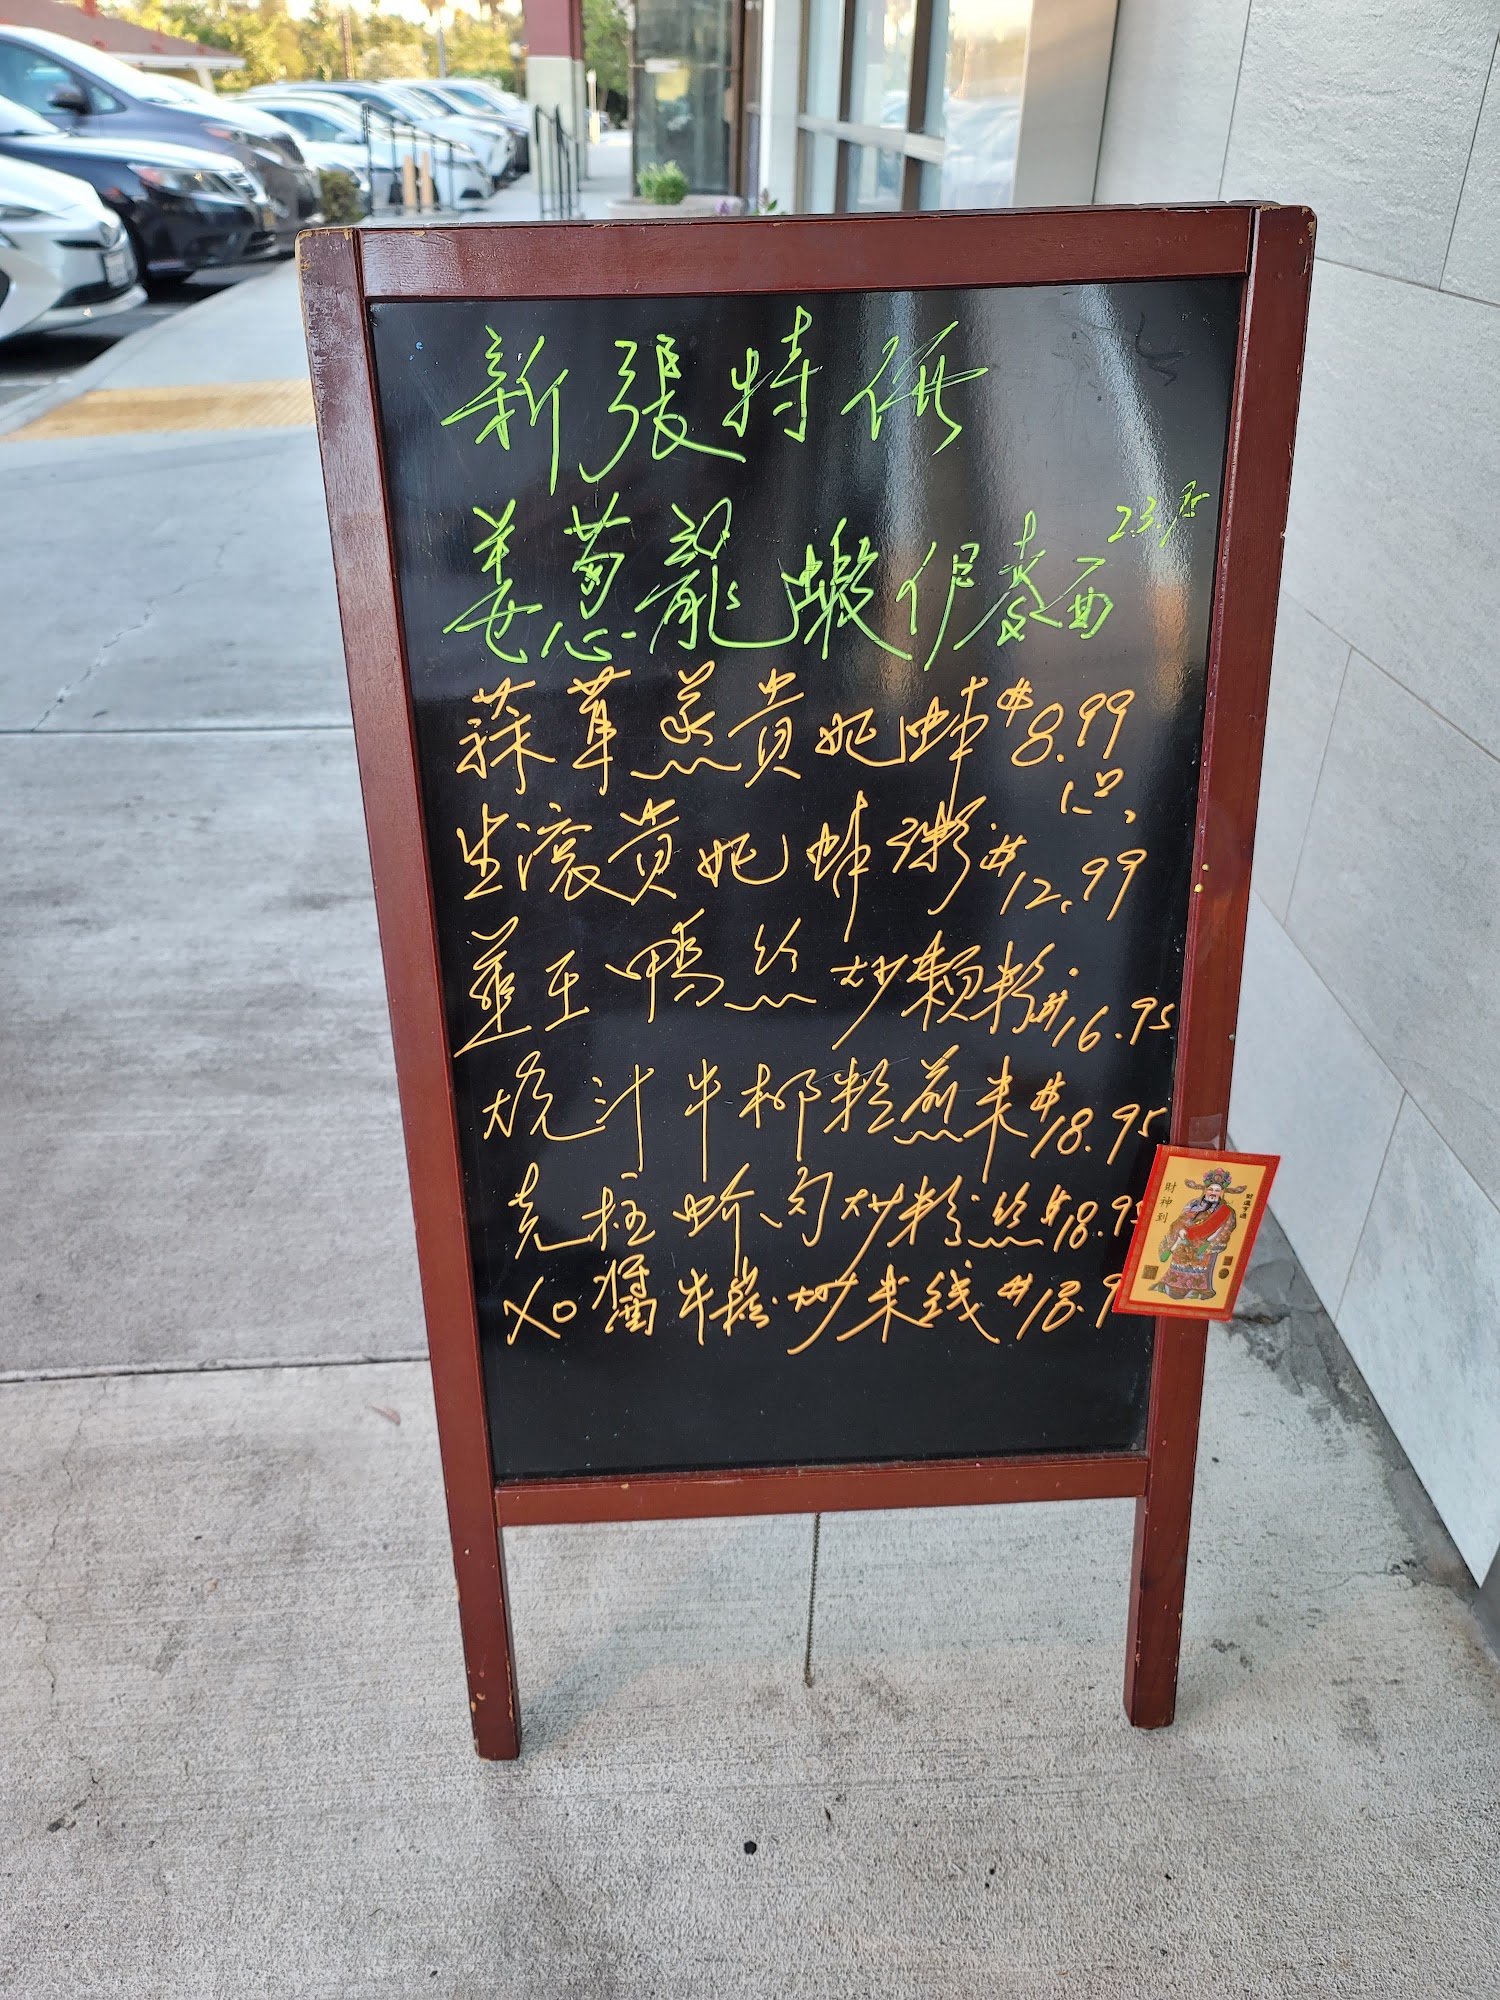 新張特價
姜葱龍蝦伊麵 23.95
蒜茸蒸貴妃蚌 $8.99
生滾貴妃蚌粥 $12.99
韮王鴨絲炒瀨粉 $16.95
燒汁牛柳粒煎米 $18.95
売柱蚧肉炒粉絲 $18.95
XO醬牛崧炒米线 $18.9
財神到